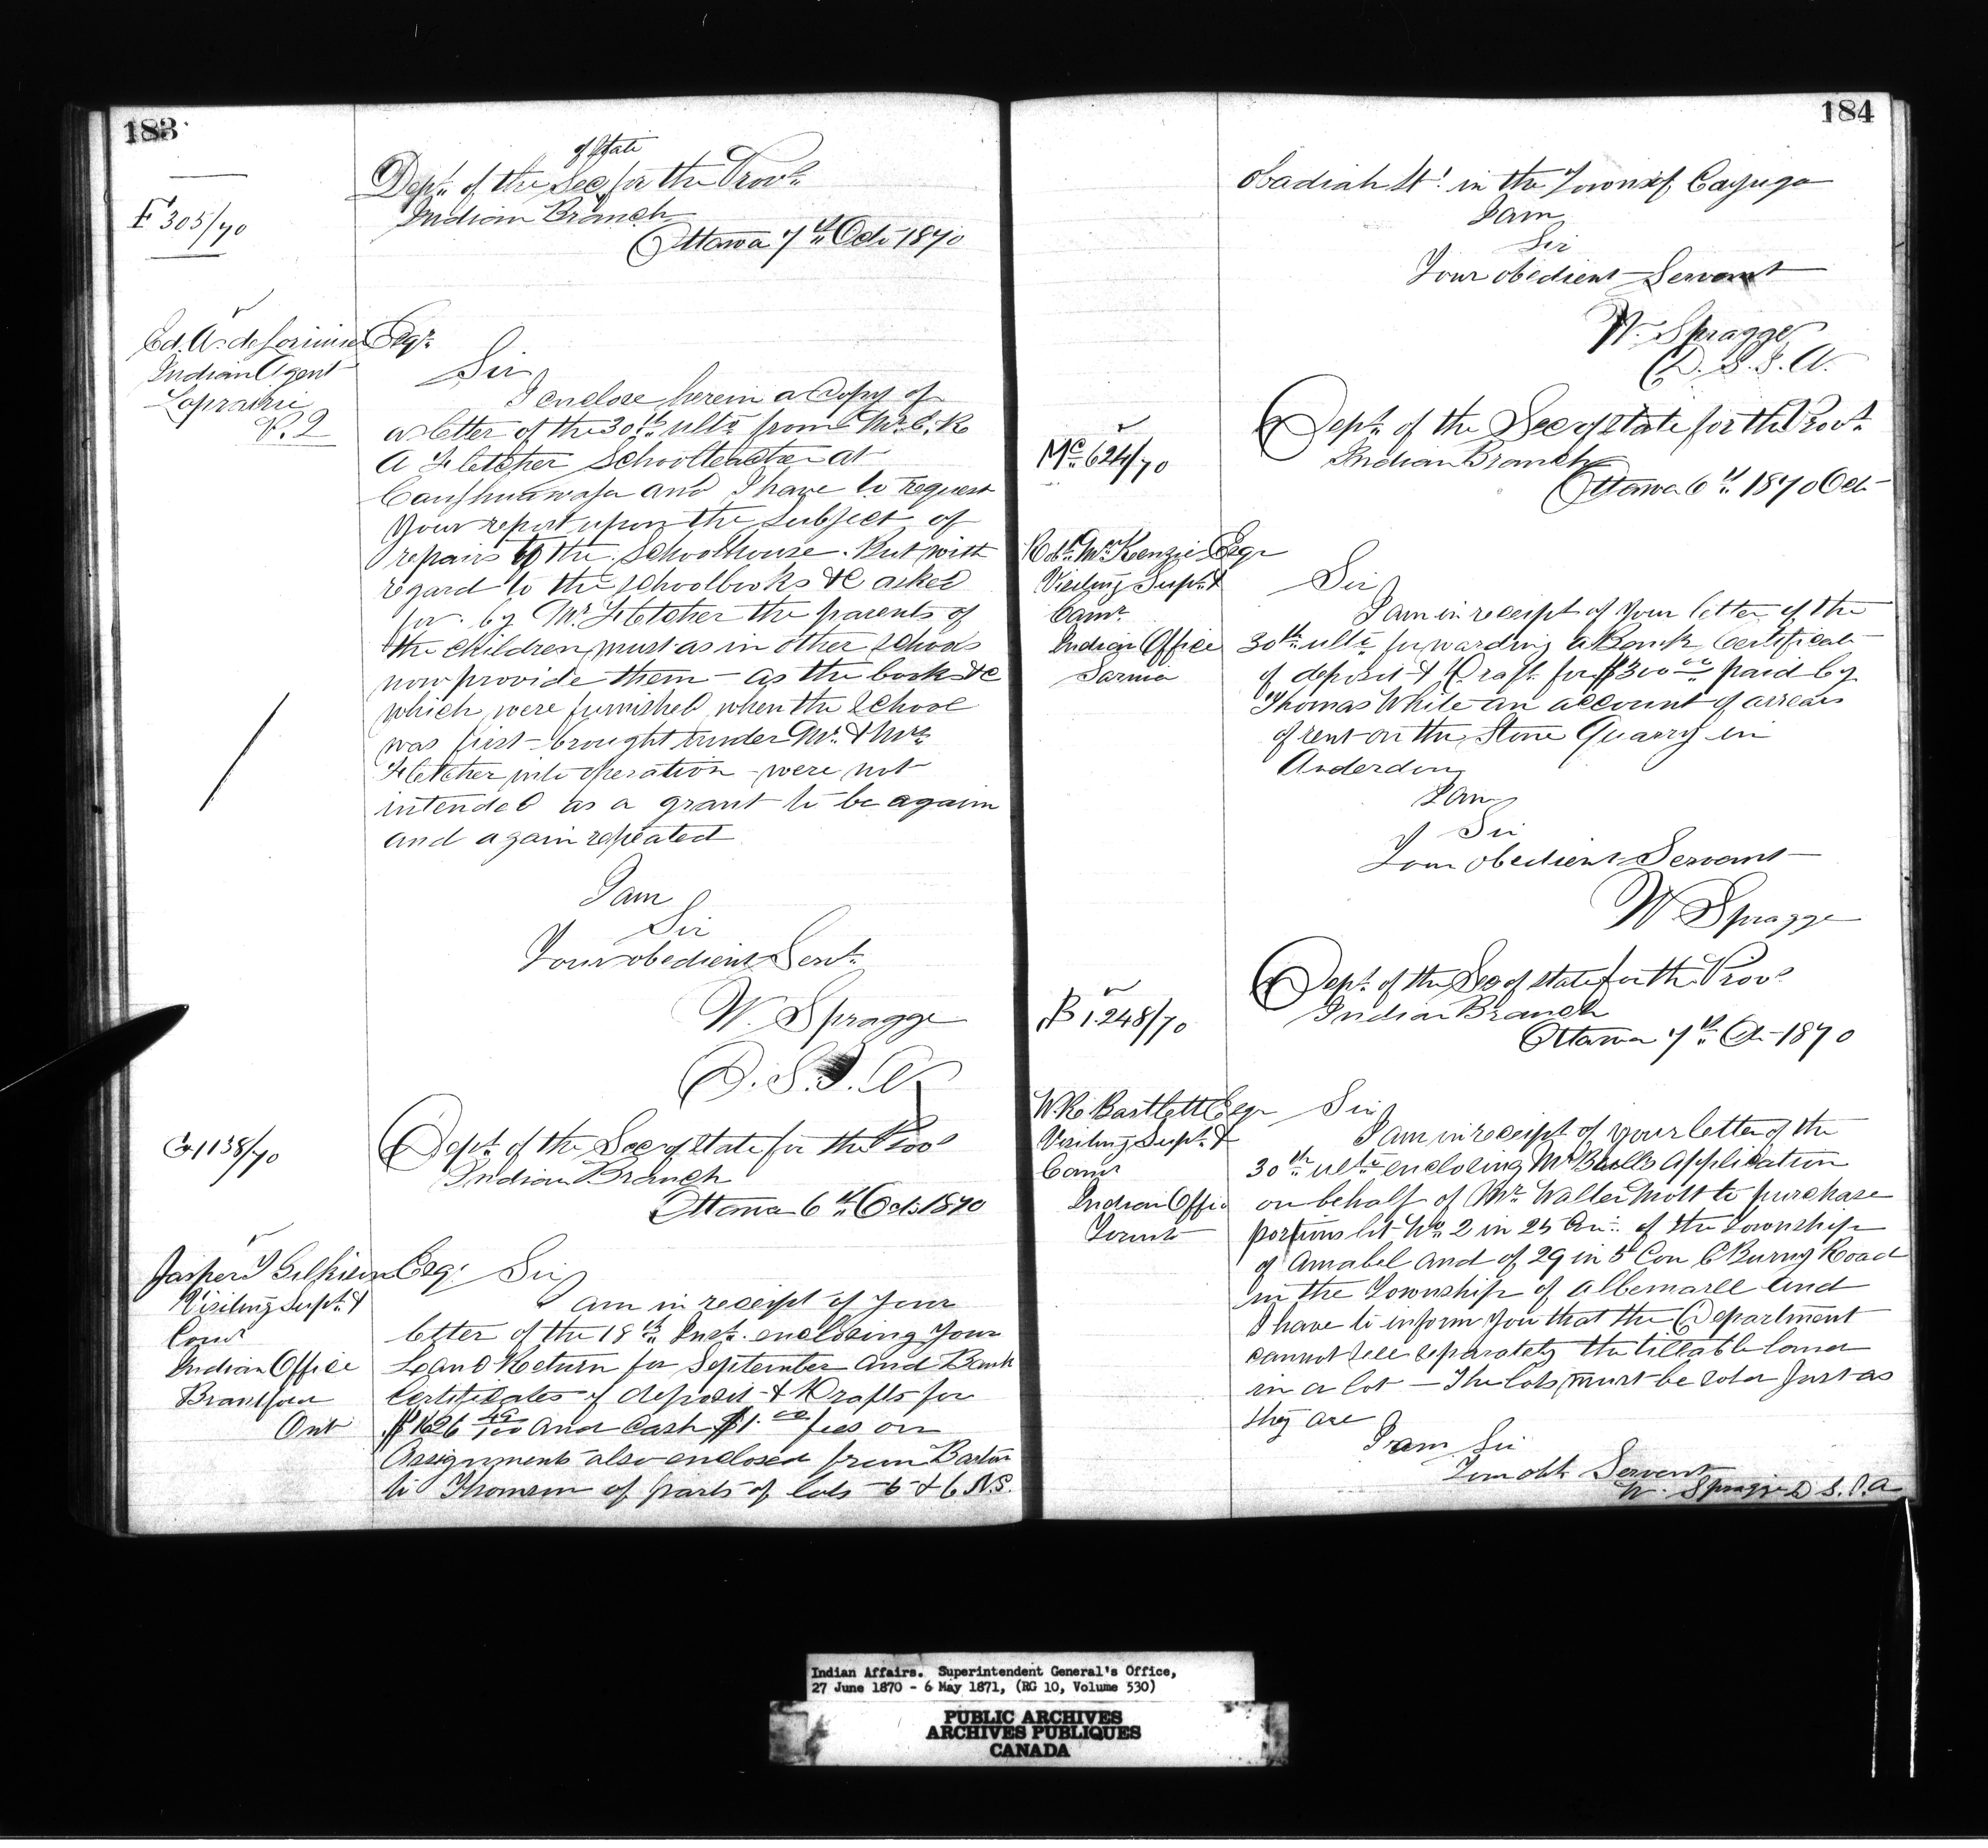 183
F 305/70
Dept. of the Sec of State for the Provs.
Indian Branch
Ottawa 7th Oct 1870
Ed. A. de Lorimier Esqr.
Indian Agent
Laprairie
P. Q
Sir
I enclose herein a copy of
a letter of the 30th ulto from Mr. E. R
A Fletcher Schoolteacher at
Caughnawaga and I have to request
your report upon the subject of
repairs to the Schoolhouse. But with
regard to the schoolbooks &c asked
for by Mr. Fletcher the parents of
the children must as in other schools
now provide them - as the books &c
which were furnished when the School
was first brought under Mr. & Mrs.
Fletcher into operation - were not
intended as a grant to be again
and again repeated
I am
Sir
Your obedient Servt.
W. Spragge
D. S. I. A.
G 1138/70
Dept. of the Sec of State for the Provs
Indian Branch
Ottawa 6th Oct. 1870
Jasper T Gilkison Esqr
Visiting Supt. &
Comr
Indian Office
Brantford
Ont
Sir
I am in receipt of your
letter of the 18th Inst. enclosing your
Land Return for September and Bank
Certificates of deposit & Drafts for
$1626 49/100 and Cash $1.00 fees on
Assignments also enclosed from Barton
to Thomson of parts of lots 5 & 6 N.S.
184
Obadiah St. in the Town of Cayuga
I am
Sir
Your obedient Servant
W. Spragge
D. S. I. A.
Mc. 624/70
Dept. of the Sec of State for the Provs.
Indian Branch
Ottawa 6th 1870 Oct
Robt. McKenzie Esqr
Visiting Supt. &
Comr.
Indian Office
Sarnia
Sir
I am in receipt of your letter of the
30th ulto forwarding a Bank Certificate
of deposit & Draft for $300.00 paid by
Thomas White on account of arrears
of rent on the Stone Quarry in
Anderdon
I am
Sir
Your obedient Servant
W Spragge
B 1.248/70
Dept. of the Sec of State for the Provs
Indian Branch
Ottawa 7th Oct 1870
W. R. Bartlett Esqr
Visiting Supt. &
Comr
Indian Office
Toronto
Sir
I am in receipt of your letter of the
30th ulto enclosing Mr Bulls Application
on behalf of Mr. Walter Mott to purchase
portions lot No. 2 in 25 Con. of the Township
of Amabel and of 29 in 5 Con E Bury Road
in the Township of Albemarle and
I have to inform you that the Department
cannot sell separately the tillable land
in a lot - The lots must be sold just as
they are
I am Sir
Your obt Servant
W. Spragge D. S. I. A
Indian Affairs. Superintendent General's Office,
27 June 1870 - 6 May 1871, (RG 10, Volume 530)
PUBLIC ARCHIVES
ARCHIVES PUBLIQUES
CANADA